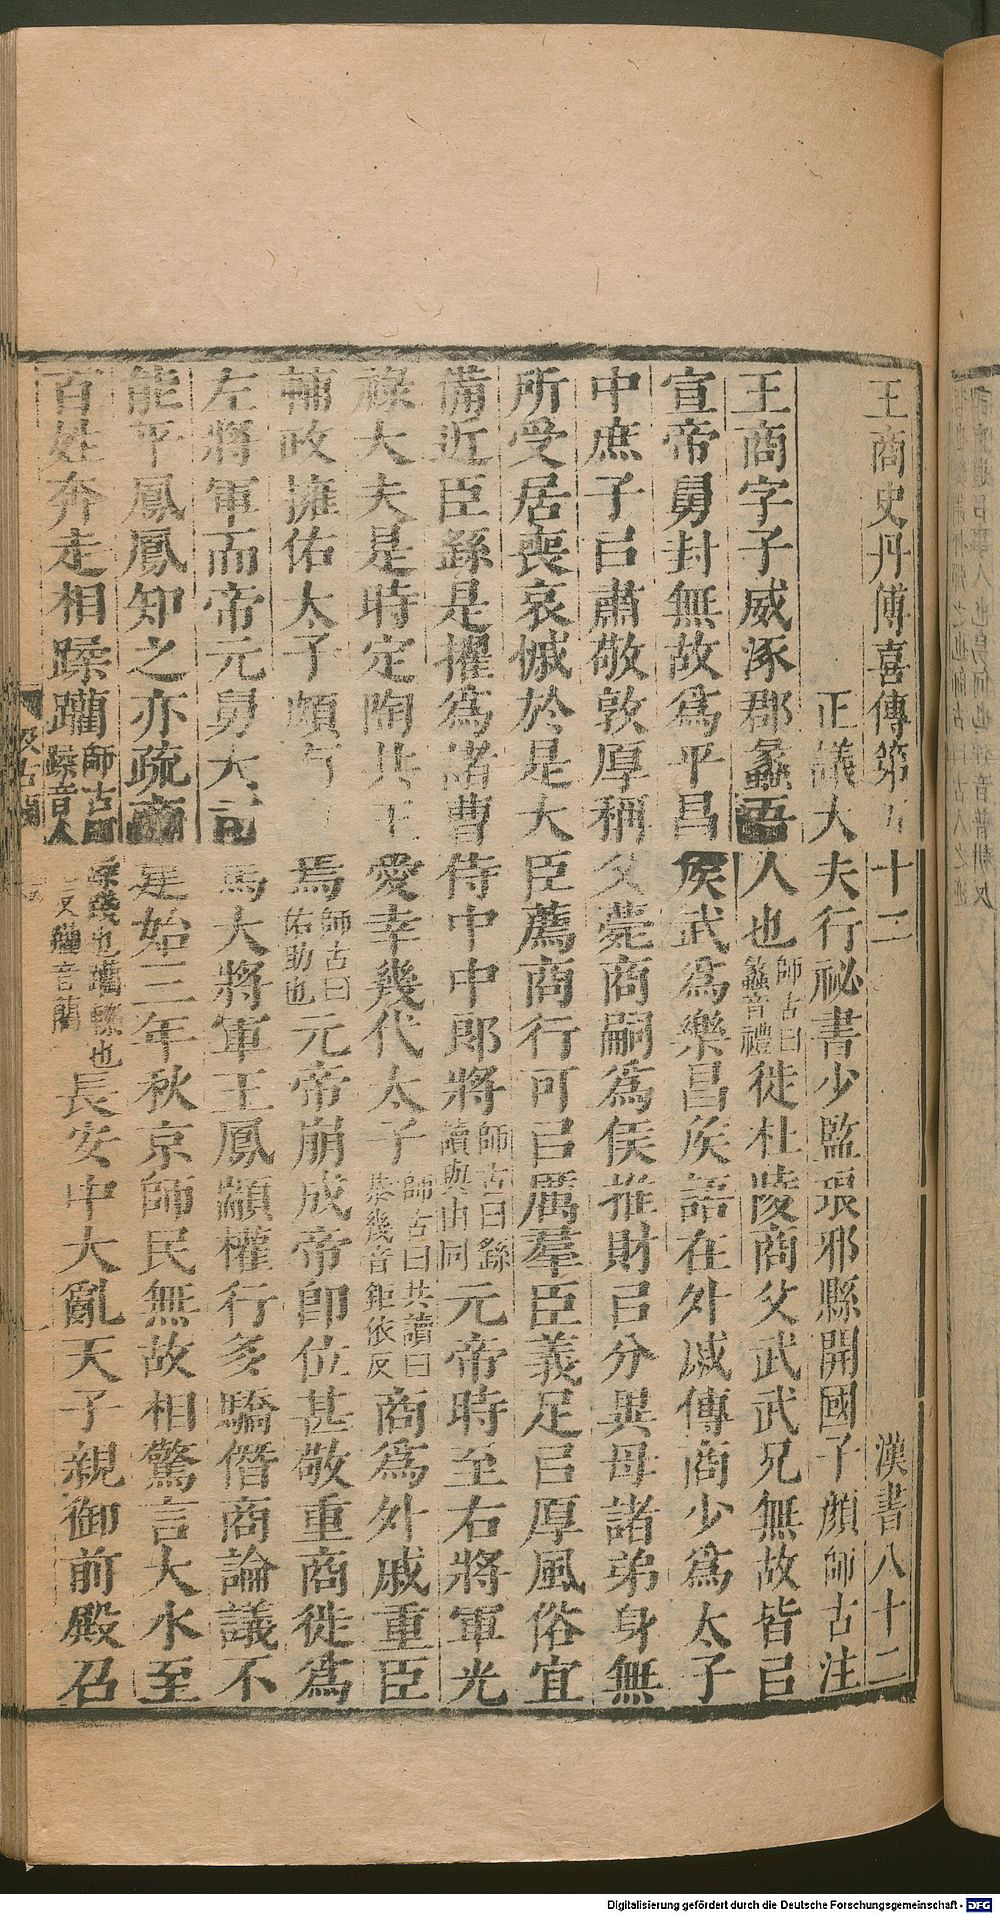 王商史丹傅喜傳第五十二　漢書八十二
正議大夫行祕書少監琅邪縣開國子顔師古注
王商字子威涿郡蠡吾人也師古曰蠡音禮徙杜陵商父武武兄無故皆㠯
宣帝舅封無故爲平昌矦武爲樂昌矦語在外戚傳商少爲太子
中庶子㠯肅敬敦厚稱父薨商嗣爲侯推財㠯分異母諸弟身無
所受居喪哀慽於是大臣薦商行可㠯厲羣臣義足㠯厚風俗宜
備近臣繇是擢爲諸曹侍中中郎將師古曰繇讀與由同元帝時至右將軍光
祿大夫是時定陶共王愛幸幾代太子師古曰共讀曰恭幾音鉅依反商爲外戚重臣
輔政擁佑太子頗有　焉師古曰佑助也元帝崩成帝卽位甚敬重商徙爲
左將軍而帝元舅大司馬大將軍王鳳顓權行多驕僭商論議不
能平鳳鳳知之亦疏商建始三年秋京師民無故相驚言大水至
百姓奔走相蹂躪師古曰蹂踐也躪轢也蹂音人　又躪音藺長安中大亂天子親御前殿召
Digitalisierung gefördert durch die Deutsche Forschungsgemeinschaft - DFG